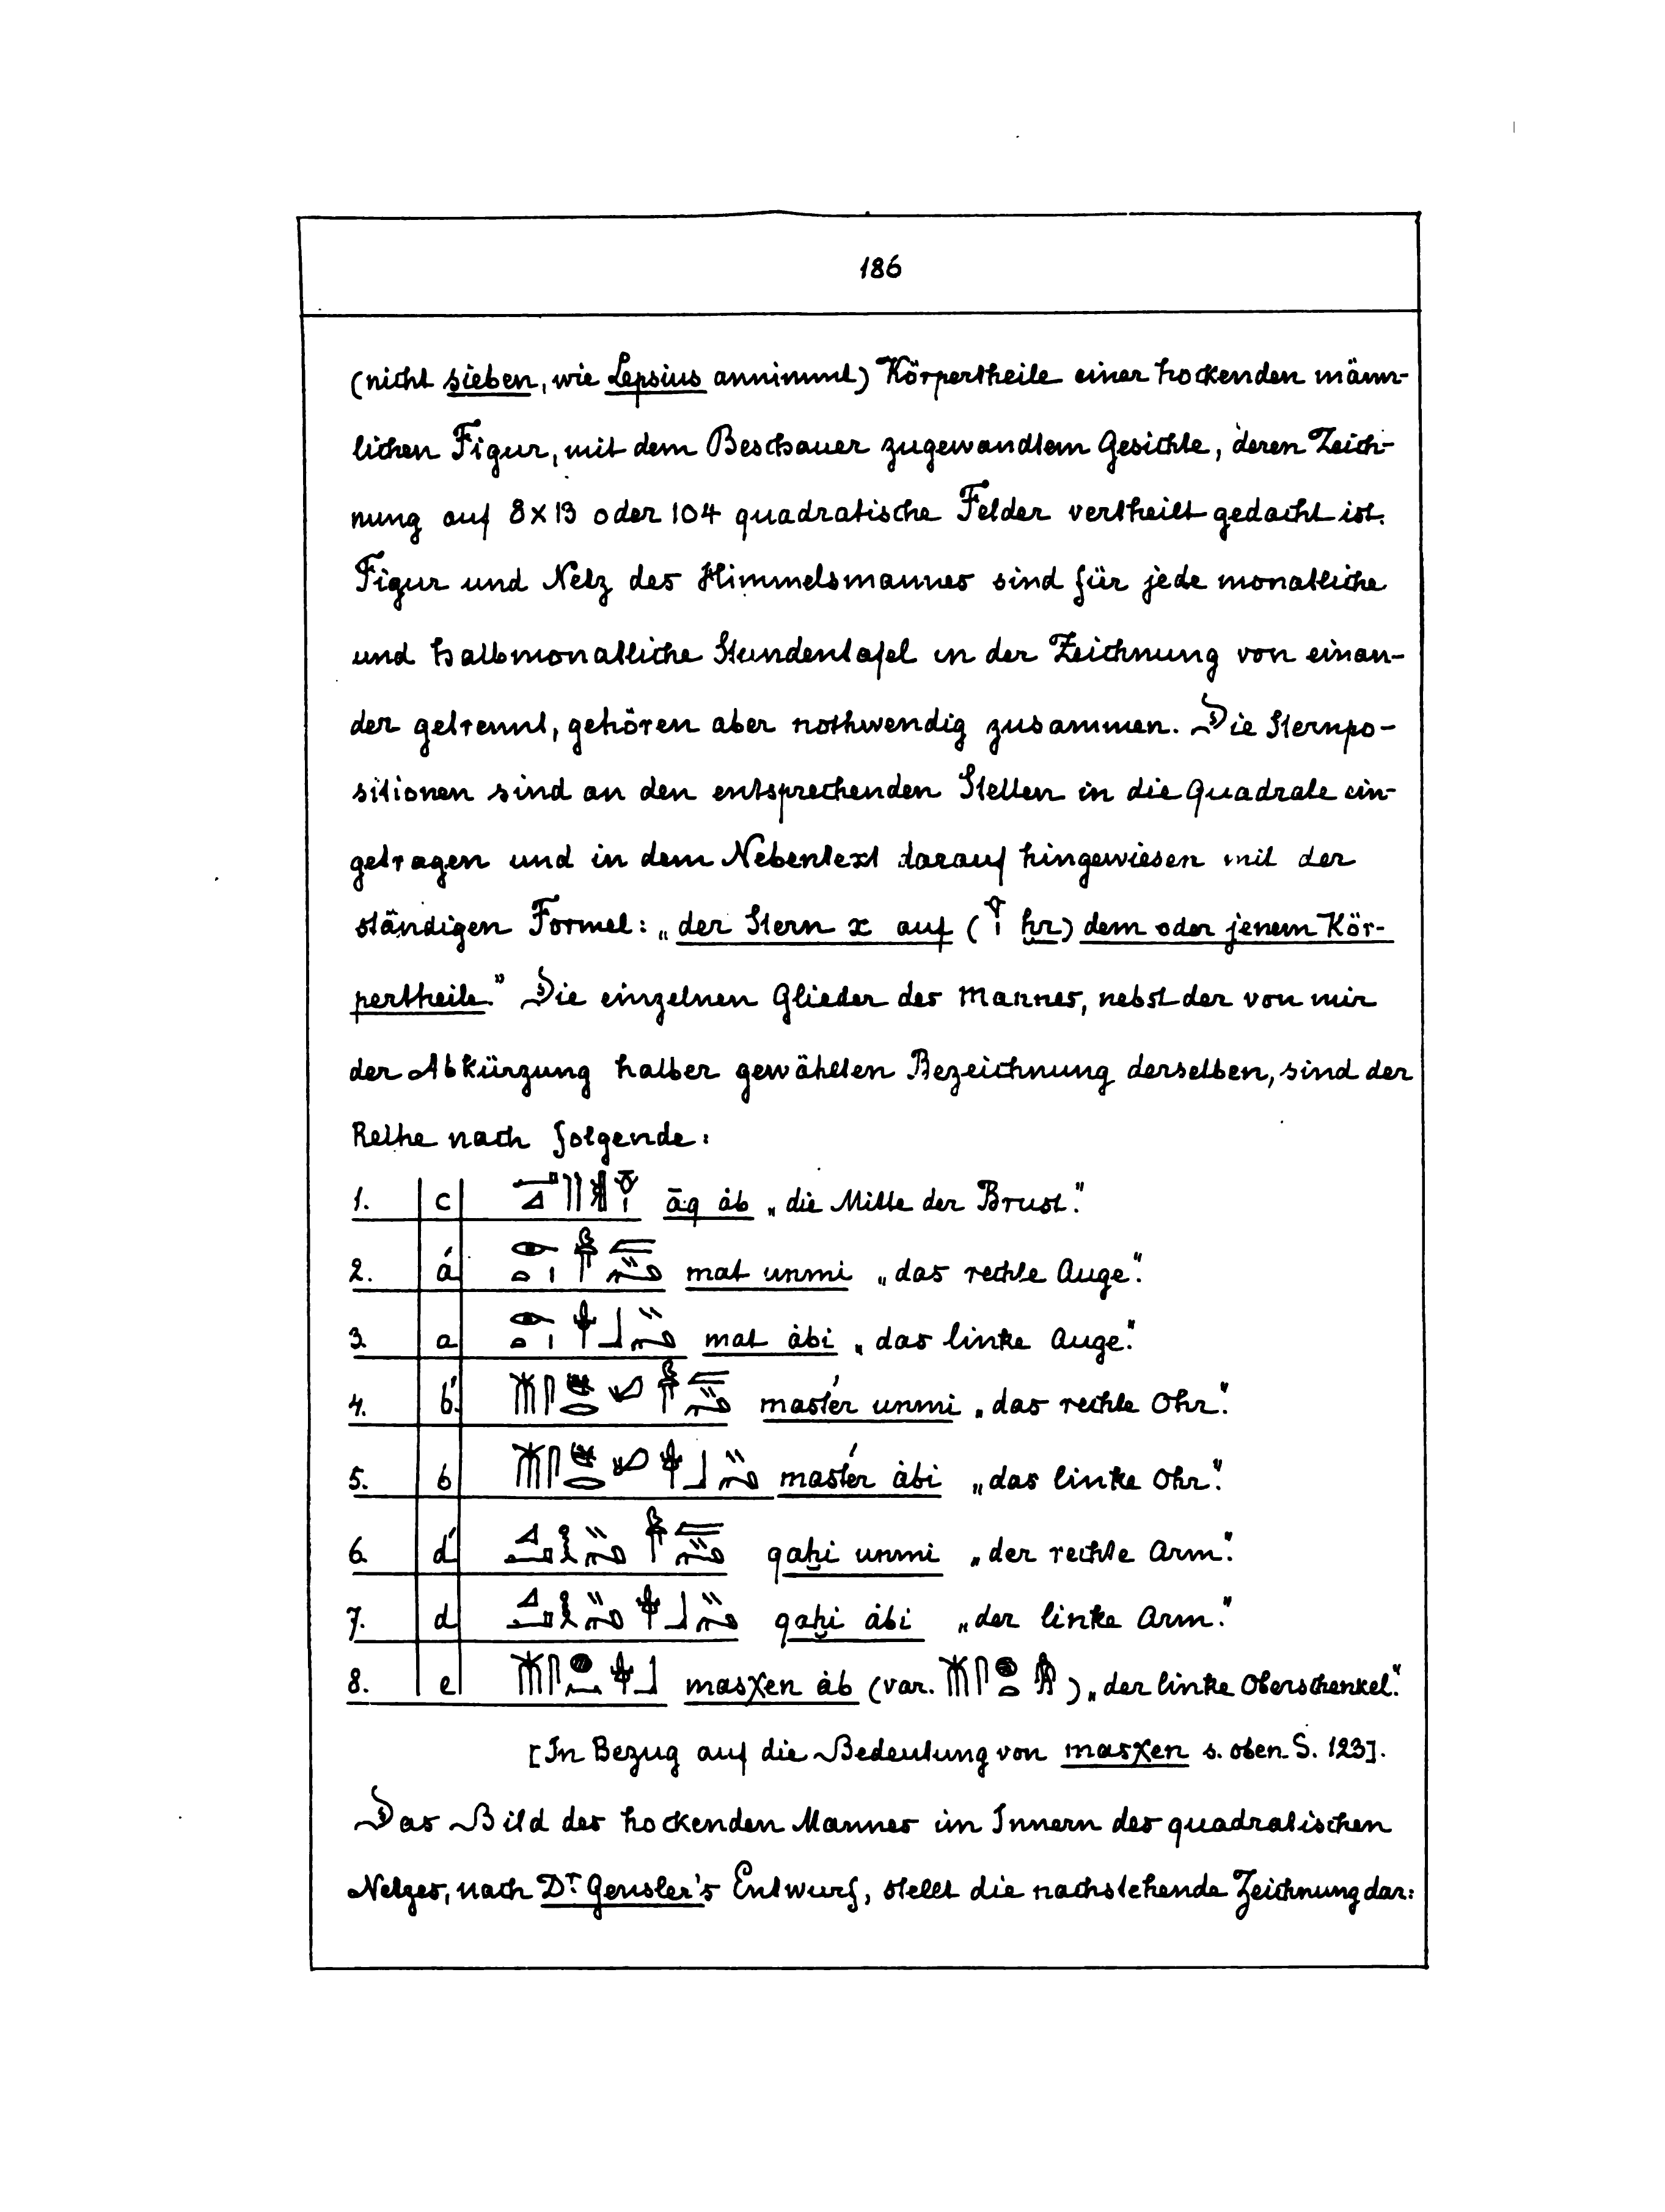 186
(nicht sieben, wie Lepsius annimmt) Körpertheile einer hockenden männ-
lichen Figur, mit dem Beschauer zugewandtem Gesichte, deren Zeich-
nung auf 8x13 oder 104 quadratische Felder vertheilt gedacht ist.
Figur und Netz des Himmelsmannes sind für jede monatliche
und halbmonatliche Stundentafel in der Zeichnung von einan-
der getrennt, gehören aber nothwendig zusammen. Die Sternpo-
sitionen sind an den entsprechenden Stellen in die Quadrate ein-
getragen und in dem Nebentext darauf hingewiesen mit der
ständigen Formel: „der Stern x auf (𓁷𓏤 ḥr) dem oder jenem Kör-
pertheile." Die einzelnen Glieder des Mannes, nebst der von mir
der Abkürzung halber gewählten Bezeichnung derselben, sind der
Reihe nach folgende:
1. c āq áb „die Mitte der Brust."
2. á mat unmi „das rechte Auge."
3. a mat ábi „das linke Auge."
4. b́ masťer unmi „das rechte Ohr."
5. b masťer ábi „das linke Ohr."
6. d́ qaḥi unmi „der rechte Arm."
7. d qaḥi ábi „der linke Arm."
8. e masχen áb (var. ) „der linke Oberschenkel."
[In Bezug auf die Bedeutung von masχen s. oben S. 123].
Das Bild des hockenden Mannes im Innern des quadratischen
Netzes, nach Dr Gensler's Entwurf, stellt die nachstehende Zeichnung dar: